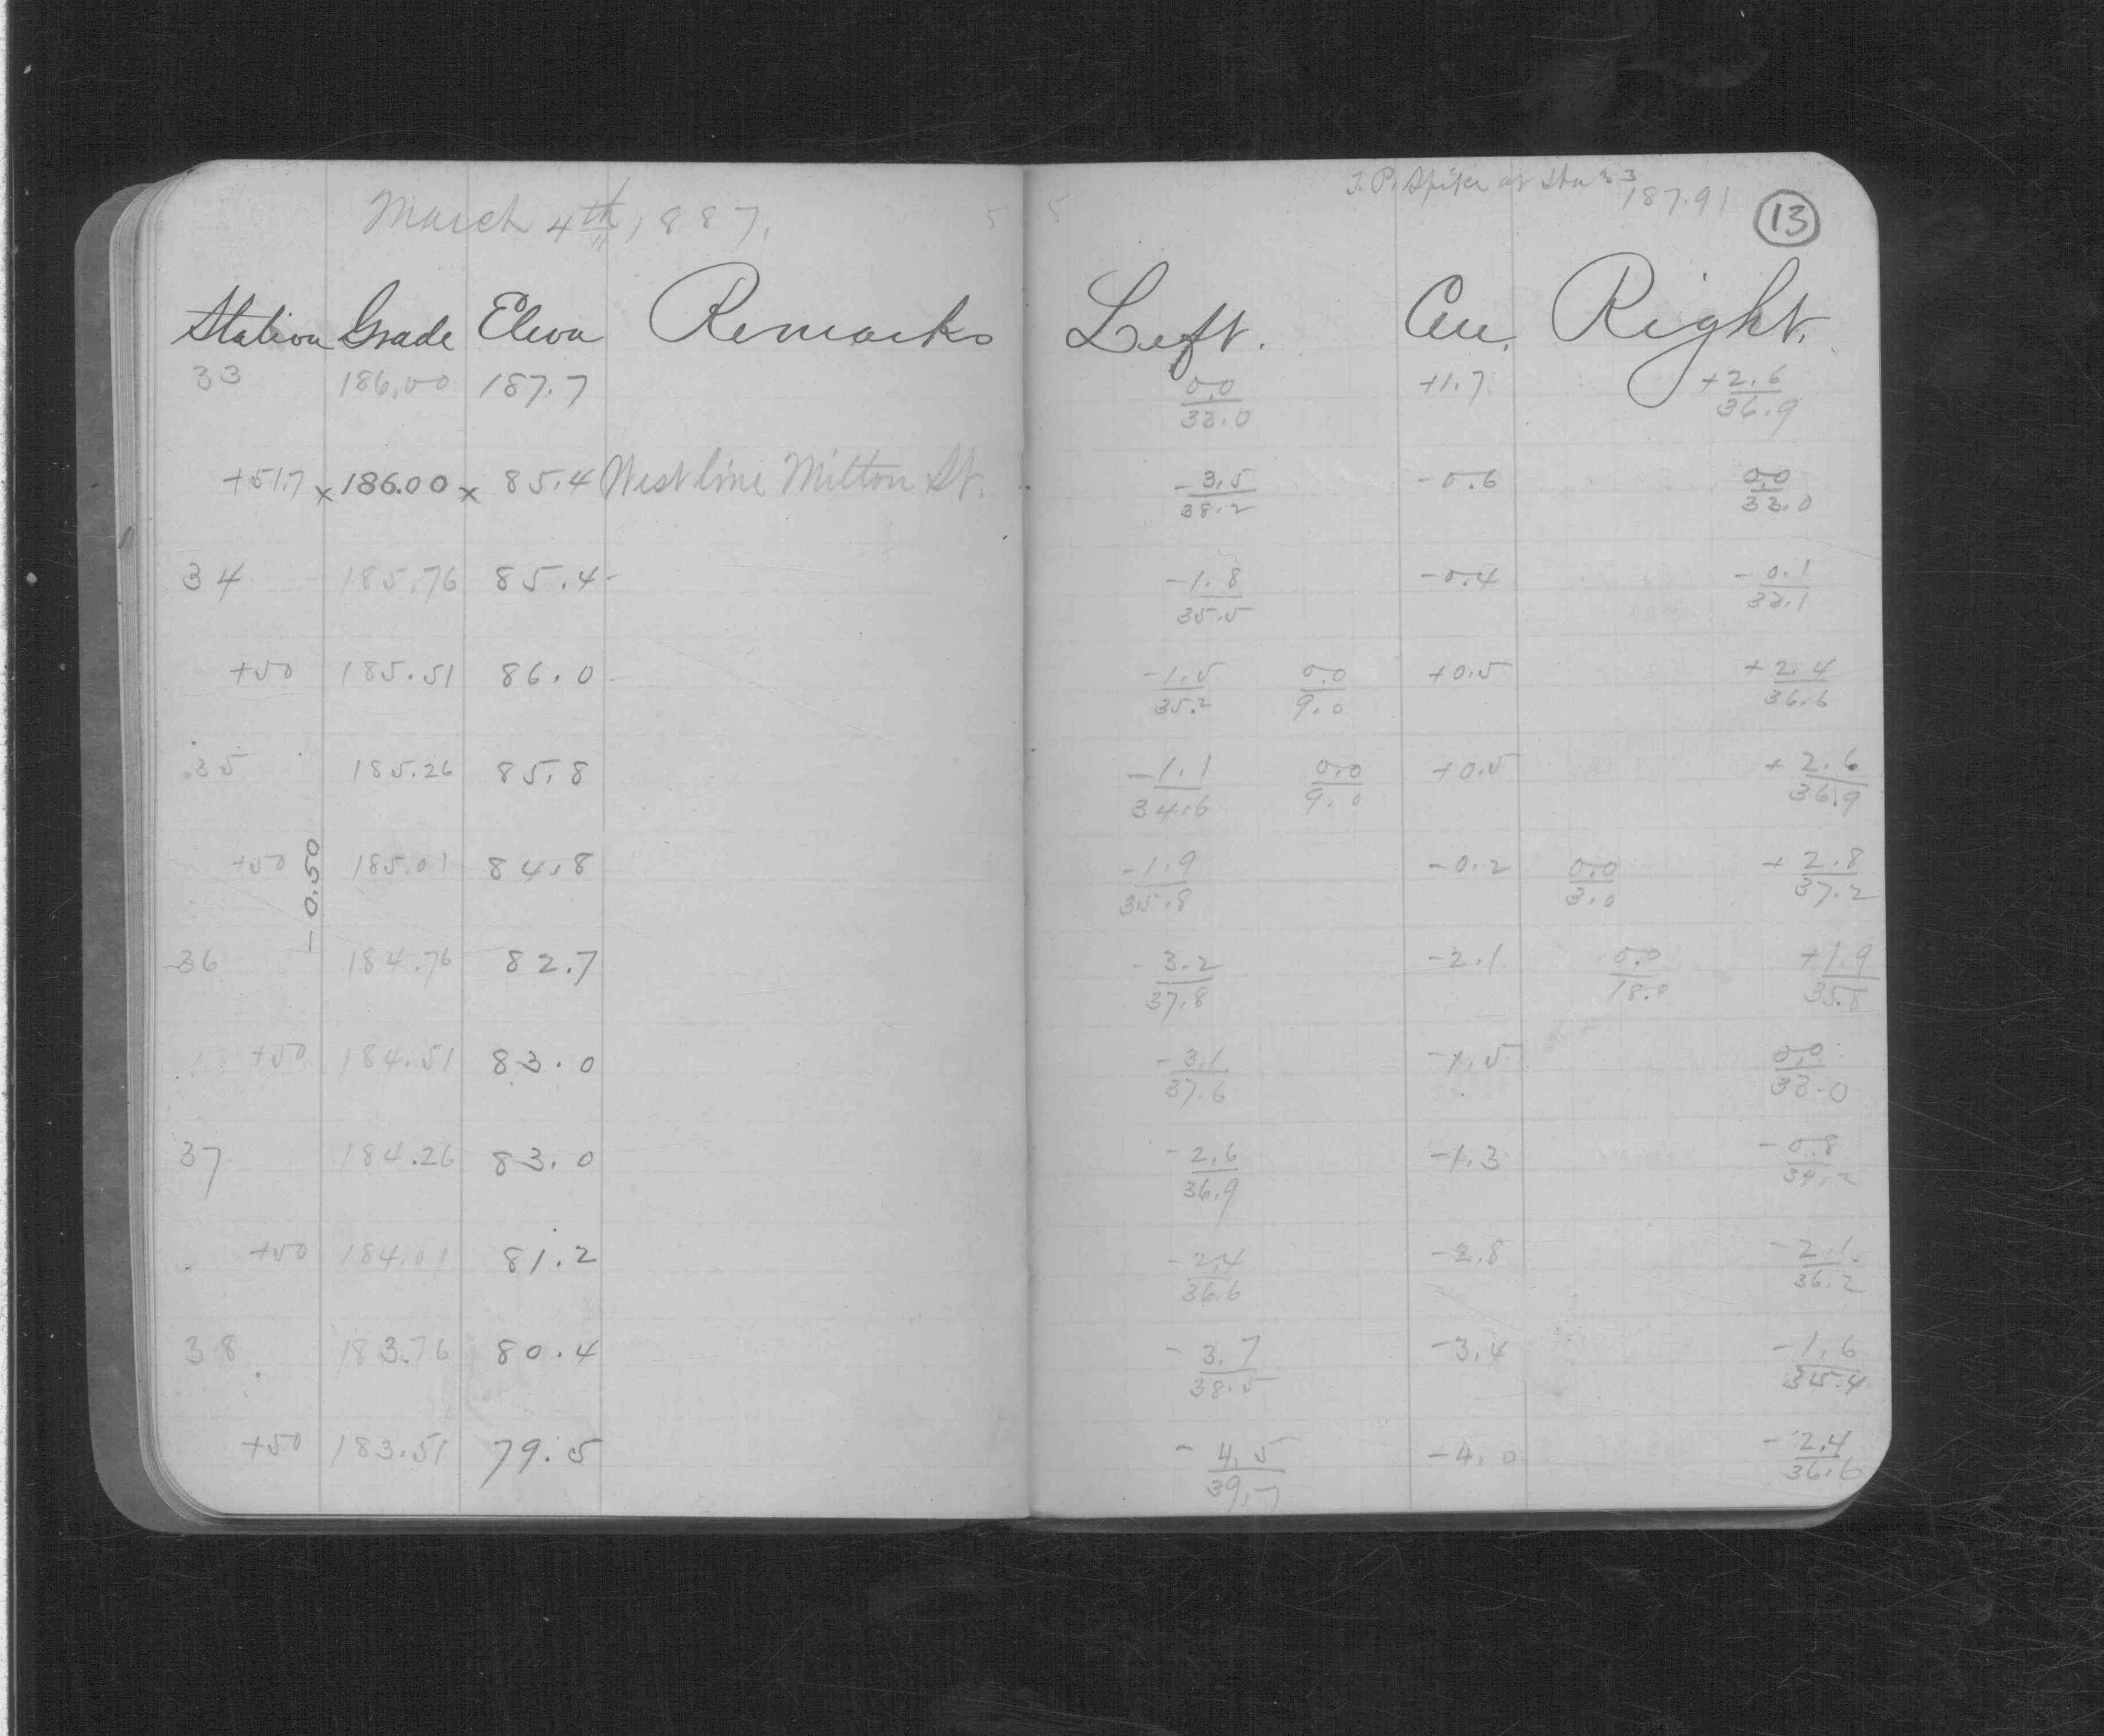 March 4th, 1887.
Station Grade Eleva Remarks
33 186.00 187.7
+51.7 x 186.00 x 85.4 West line Milton St.
34 185.76 85.4
+50 185.51 86.0
35 185.26 85.8
+50 185.01 84.8
- 0.50
36 184.76 82.7
+50 184.51 83.0
37 184.26 83.0
+50 184.01 81.2
38 183.76 80.4
+50 183.51 79.5
T.P. Spike at Sta 33
187.91
13
Left. Cen. Right.
0.0 +1.7 +2.6
33.0 36.9
-3.5 -0.6 0.0
38.2 33.0
-1.8 -0.4 -0.1
35.5 33.1
-1.5 0.0 +0.5 +2.4
35.2 9.0 36.6
-1.1 0.0 +0.5 +2.6
34.6 9.0 36.9
-1.9 -0.2 0.0 +2.8
35.8 3.0 37.2
-3.2 -2.1 0.0 +1.9
37.8 18.0 35.8
-3.1 -1.5 0.0
37.6 33.0
-2.6 -1.3 -0.8
36.9 34.2
-2.4 -2.8 -2.1
36.6 36.2
-3.7 -3.4 -1.6
38.5 35.4
-4.5 -4.0 -2.4
39.7 36.6